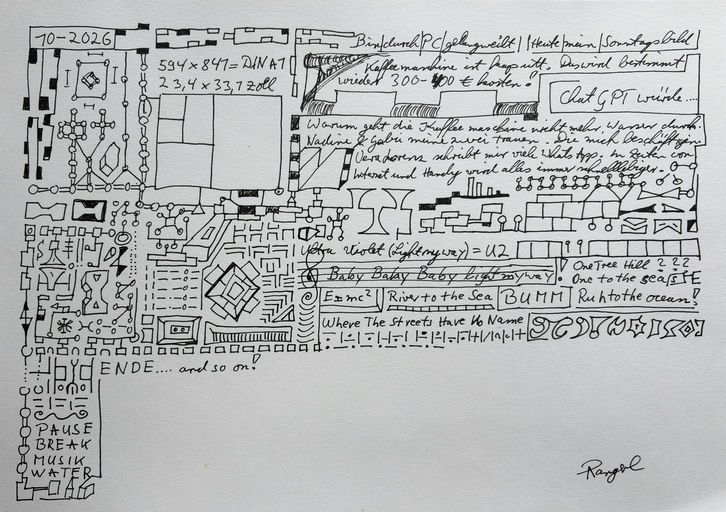 10-2026
Bin/durch/PC/gelangweilt/ Heute/mein/Sonntagsbild
594 x 841 = DIN A1
23,4 x 33,1 Zoll
Kaffeemaschine ist kaputt. Das wird bestimmt
wieder 300-400 € kosten!
Chat GPT würde....
Warum geht die Kaffeemaschine nicht mehr. Wasser durch.
Nadine & Gabi meine zwei Frauen. Die mich beschäftigen.
Vera Lorenz schreibt mir viel WhatsApp. In Zeiten von
Internet und Handy wird alles immer schnelllebiger.
Ultra Violet (Light my way) = U2
Baby Baby Baby light my way
! One Tree Hill ? ? ?
One to the sea
E=mc²
River to the Sea
BUMM
Run to the ocean!
Where The Streets Have No Name
ENDE.... and so on!
PAUSE
BREAK
MUSIK
WATER